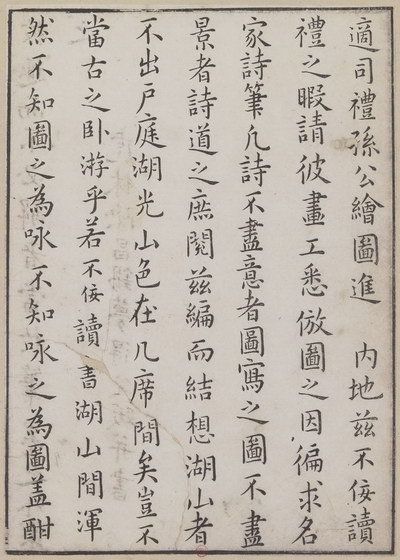 適司禮孫公繪圖進　內地茲不佞讀
禮之暇請彼畫工悉倣圖之因徧求名
家詩筆凡詩不盡意者圖寫之圖不盡
景者詩道之庶閱茲編而結想湖山者
不出戶庭湖光山色在几席間矣豈不
當古之臥游乎若不佞讀書湖山間渾
然不知圖之為咏不知咏之為圖盖酣